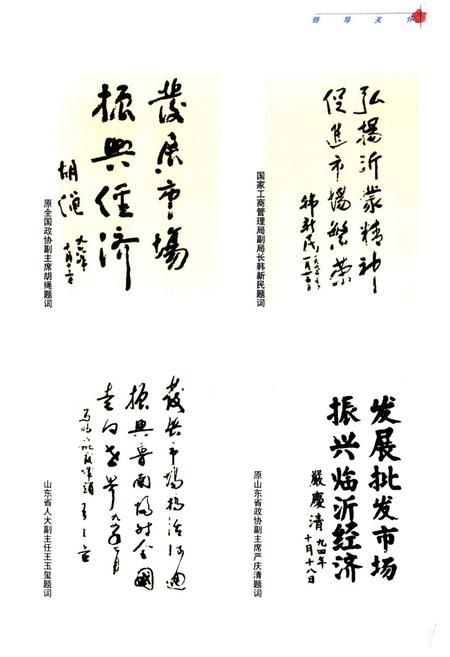 领导关怀
發展市場
振興經济
胡绳
九六年
十月十二日
原全国政协副主席胡绳题词
弘揚沂蒙精神
促進市場繁荣
韩新民
国家工商管理局副局长韩新民题词
發展市場搞活流通
振興魯南
面向全國
走向世界
山东省人大副主任王玉玺题词
发展批发市场
振兴临沂经济
嚴慶清
九四年
十月十八日
原山东省政协副主席严庆清题词